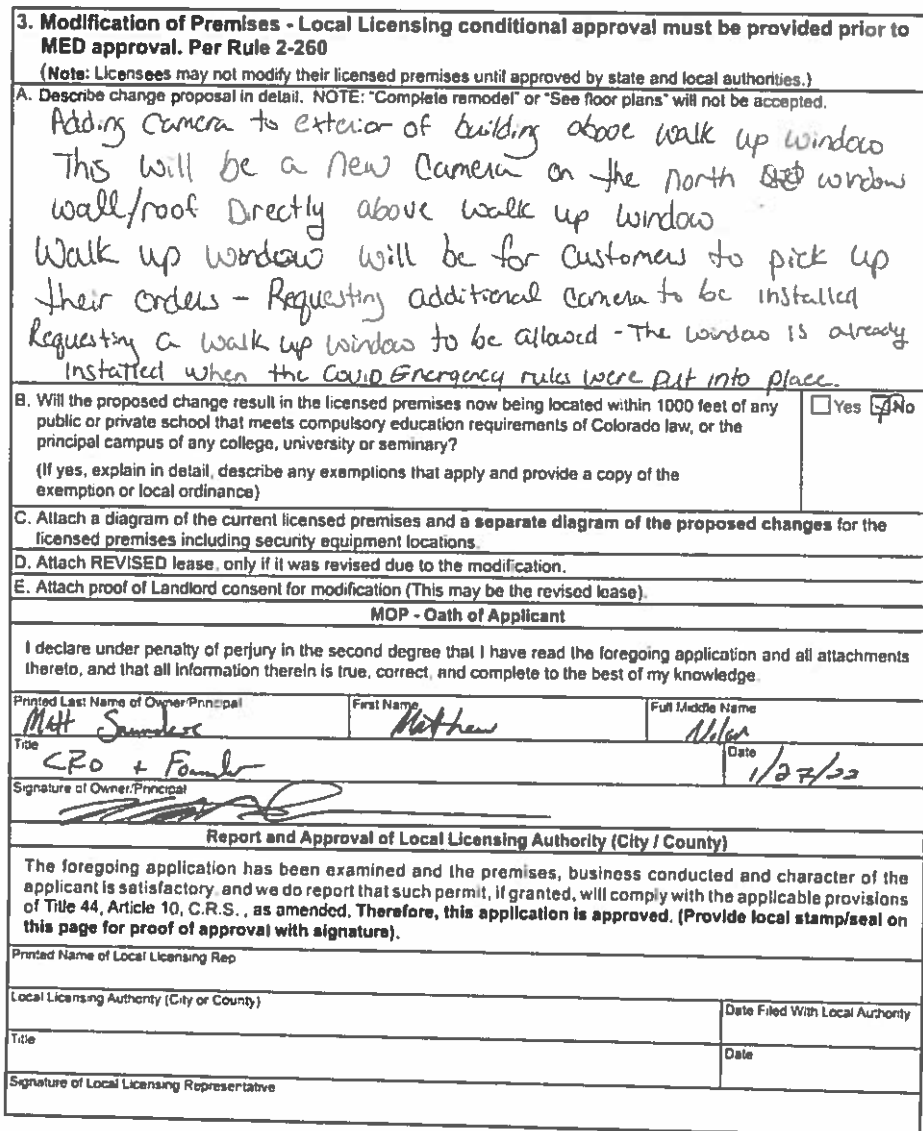 3. Modification of Premises - Local Licensing conditional approval must be provided prior to
MED approval. Per Rule 2-260
(Note: Licensees may not modify their licensed premises until approved by state and local authorities.)
A. Describe change proposal in detail. NOTE: "Complete remodel" or "See floor plans" will not be accepted.
Adding Camera to exterior of building above walk up window
This will be a new Camera on the north window
wall/roof Directly above walk up window
Walk up window will be for customers to pick up
their orders - Requesting additional camera to be installed
Requesting a walk up window to be allowed - The window is already
installed when the Covid Emergency rules were put into place.
B. Will the proposed change result in the licensed premises now being located within 1000 feet of any
public or private school that meets compulsory education requirements of Colorado law, or the
principal campus of any college, university or seminary?
Yes No
(If yes, explain in detail, describe any exemptions that apply and provide a copy of the
exemption or local ordinance)
C. Attach a diagram of the current licensed premises and a separate diagram of the proposed changes for the
licensed premises including security equipment locations.
D. Attach REVISED lease, only if it was revised due to the modification.
E. Attach proof of Landlord consent for modification (This may be the revised lease).
MOP - Oath of Applicant
I declare under penalty of perjury in the second degree that I have read the foregoing application and all attachments
thereto, and that all information therein is true, correct, and complete to the best of my knowledge.
Printed Last Name of Owner/Principal First Name Full Middle Name
Matt Mathew
Title Date
+ 1/27/22
Signature of Owner/Principal
Report and Approval of Local Licensing Authority (City / County)
The foregoing application has been examined and the premises, business conducted and character of the
applicant is satisfactory, and we do report that such permit, if granted, will comply with the applicable provisions
of Title 44, Article 10, C.R.S. , as amended. Therefore, this application is approved. (Provide local stamp/seal on
this page for proof of approval with signature).
Printed Name of Local Licensing Rep
Local Licensing Authority (City or County) Date Filed With Local Authority
Title Date
Signature of Local Licensing Representative